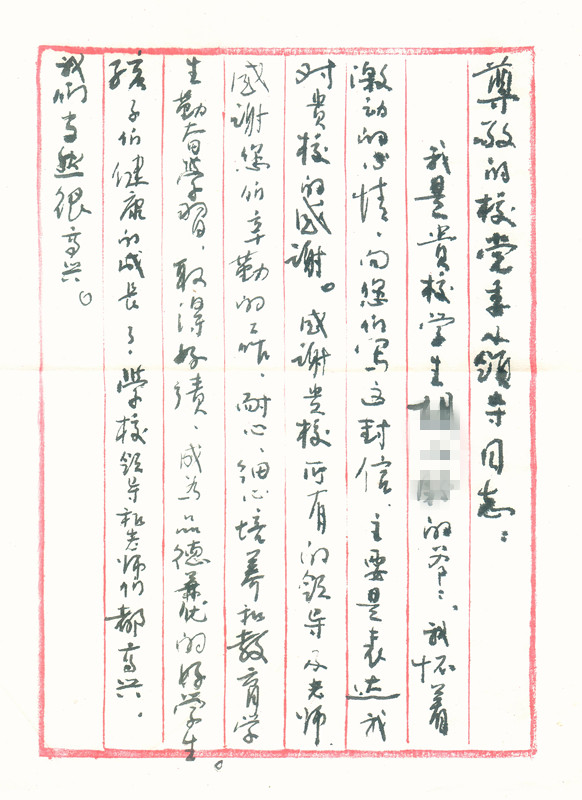 尊敬的校党委及领导同志：
我是贵校学生胡的爷爷，我怀着
激动的心情，向您们写这封信，主要是表达我
对贵校的感谢。感谢贵校所有的领导及老师，
感谢您们辛勤的工作，耐心、细心培养和教育学
生勤奋学习，取得好成绩，成为品德兼优的好学生。
孩子们健康的成长了，学校领导和老师们都高兴。
我们当然很高兴。